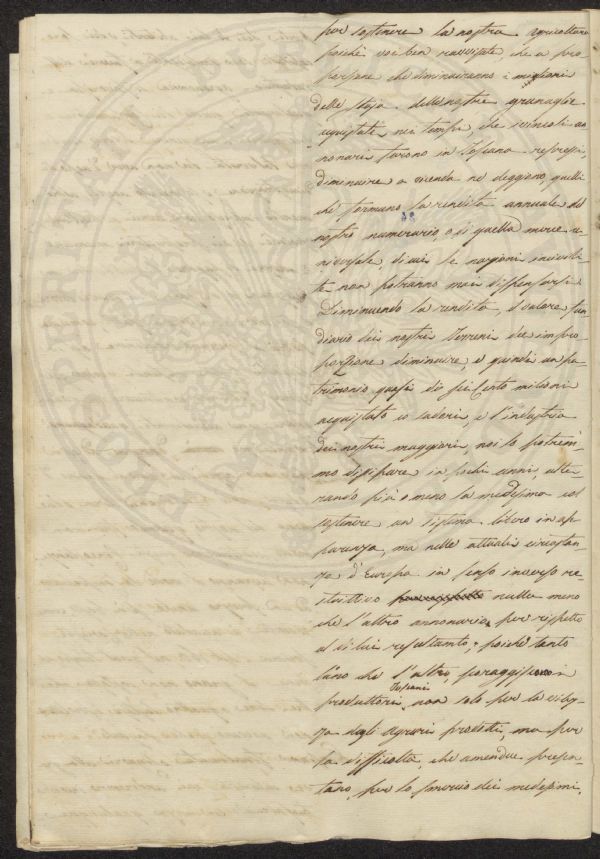 per sostenere la nostra agricoltura
poichè voi ben ravvisate, che a pro=
porzione che diminuiranno i migliori
delle stoja delle nostre granaglie
acquistate nei tempi, che i vincoli an
nonari furono in Toscana repressi,
diminuire a vicenda ne deggiono, quelli
che formano la rendita annuale del
48
nostro numerario, o di quella merce u=
niversale, di cui le nazioni incivili=
te non potranno mai dispensarsi
Diminuendo la rendita, il valore fon
diario dei nostri Terreni dee in pro=
porzione diminuire, e quindi un pa=
trimonio quasi di seicento milioni
acquistato co' sudori, e l'industria
dei nostri maggiori, noi lo potrem=
mo dissipare in pochi anni, alte=
rando più o meno la medesima col
sostenere un sistema libero in ap
parenza, ma nelle attuali circostan
ze d'Europa in senso inverso re=
strittivo nulla meno
che l'altro annonario per rispetto
al di lui resultamento; poichè tanto
l'uno che l'altro, scoraggiscono i
Toscani
produttori, non solo per la vilez=
za degli agrari prodotti, ma per
la difficoltà, che amendue presen
tano, per lo smercio dei medesimi,